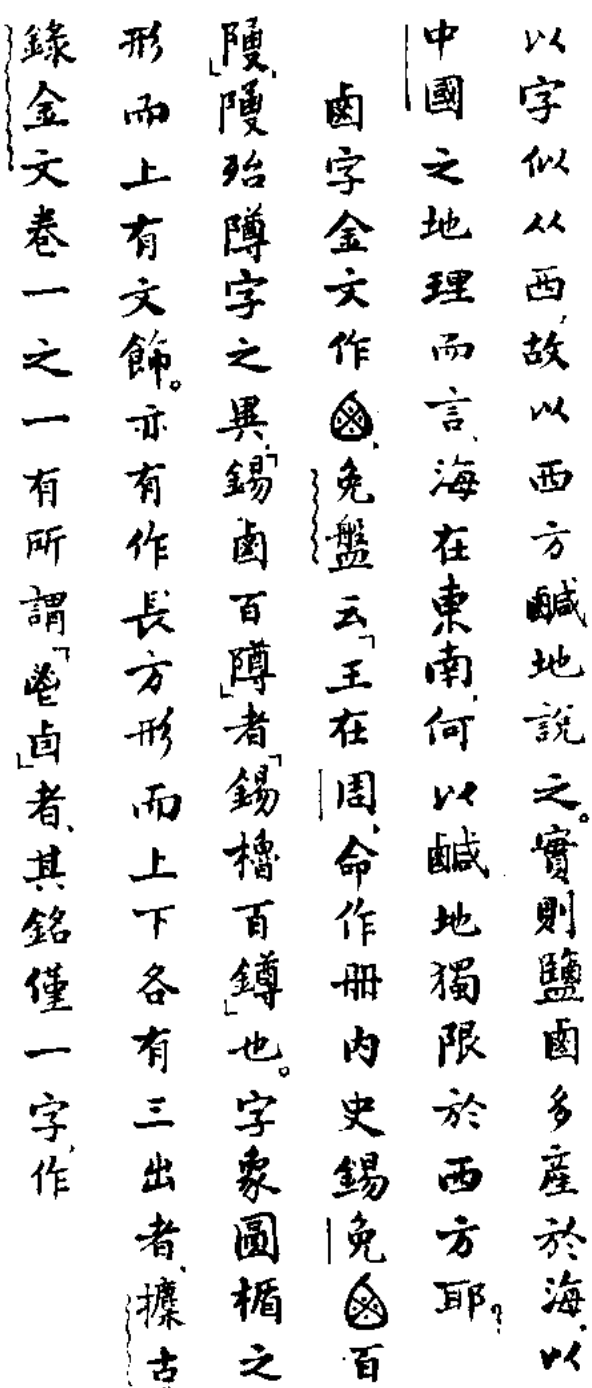 以字似从西，故以西方鹹地說之。實則鹽鹵多産於海，以
中國之地理而言，海在東南，何以鹹地獨限於西方耶？
鹵字金文作，免盤云「王在周，命作册内史錫免百
𨻰」，𨻰殆𨻵字之異，「錫鹵百𨻵」者「錫櫓百鐏」也。字象圓楯之
形而上有文飾。亦有作長方形而上下各有三出者，攈古
錄金文卷一之一有所謂「卣」者，其銘僅一字，作